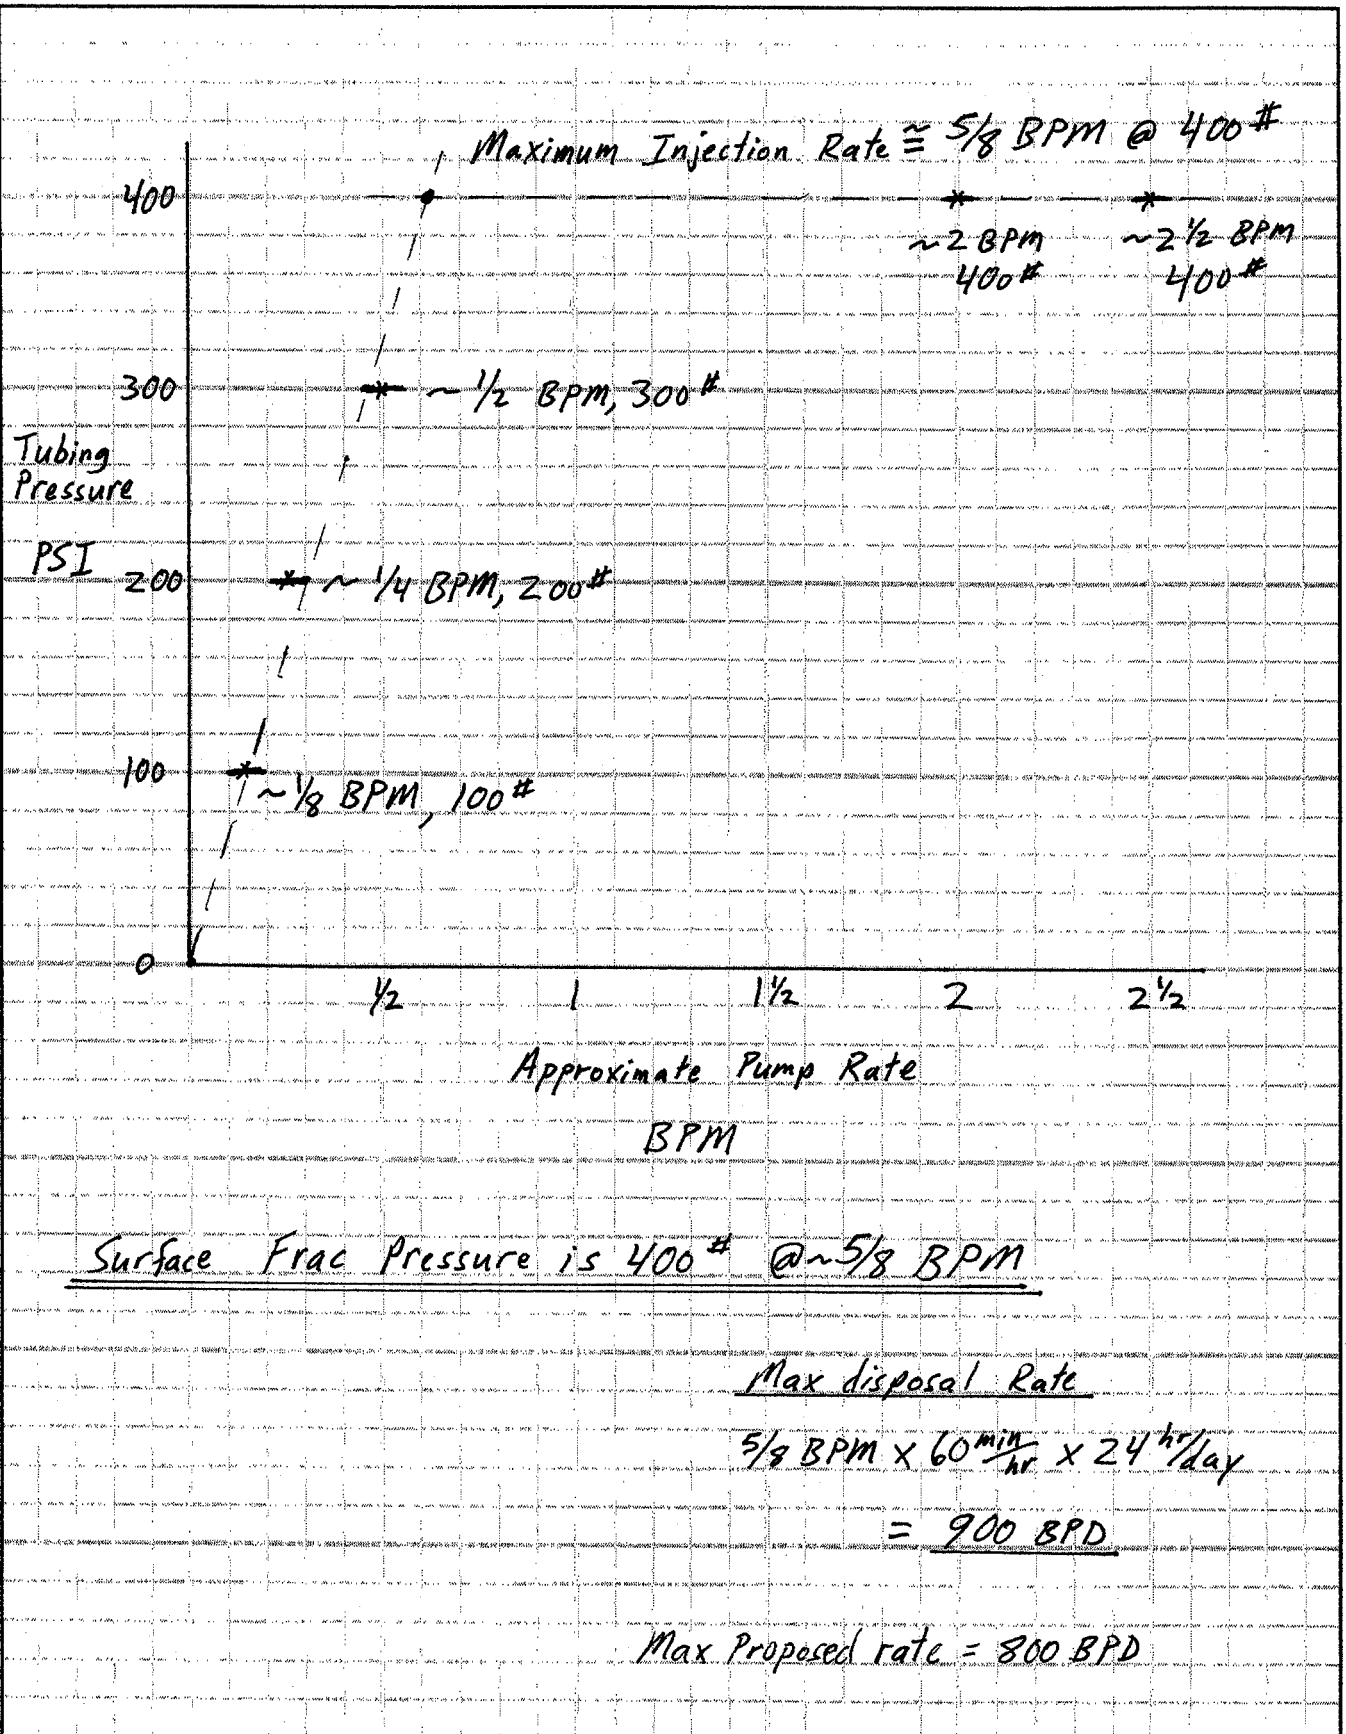 Maximum Injection Rate ≅ 5/8 BPM @ 400#
400
~2 BPM
400#
~2 1/2 BPM
400#
300
~ 1/2 BPM, 300#
Tubing
Pressure
PSI
200
~ 1/4 BPM, 200#
100
~1/8 BPM, 100#
0
1/2 1 1 1/2 2 2 1/2
Approximate Pump Rate
BPM
Surface Frac Pressure is 400# @~5/8 BPM
Max disposal Rate
5/8 BPM x 60 min/hr x 24 hr/day
= 900 BPD
Max Proposed rate = 800 BPD